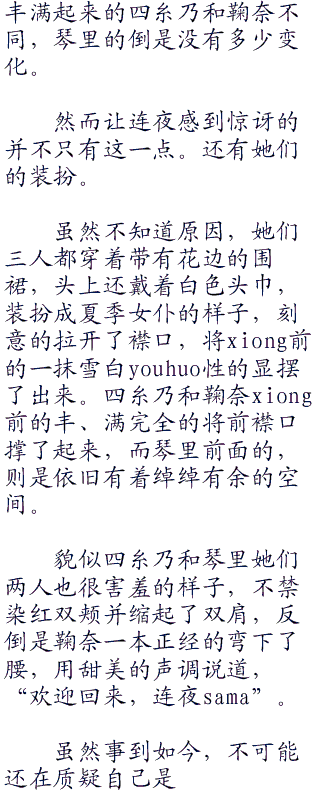 丰满起来的四糸乃和鞠奈不
同，琴里的倒是没有多少变
化。
然而让连夜感到惊讶的
并不只有这一点。还有她们
的装扮。
虽然不知道原因，她们
三人都穿着带有花边的围
裙，头上还戴着白色头巾，
装扮成夏季女仆的样子，刻
意的拉开了襟口，将xiong前
的一抹雪白youhuo性的显摆
了出来。四糸乃和鞠奈xiong
前的丰、满完全的将前襟口
撑了起来，而琴里前面的，
则是依旧有着绰绰有余的空
间。
貌似四糸乃和琴里她们
两人也很害羞的样子，不禁
染红双颊并缩起了双肩，反
倒是鞠奈一本正经的弯下了
腰，用甜美的声调说道，
“欢迎回来，连夜sama”。
虽然事到如今，不可能
还在质疑自己是